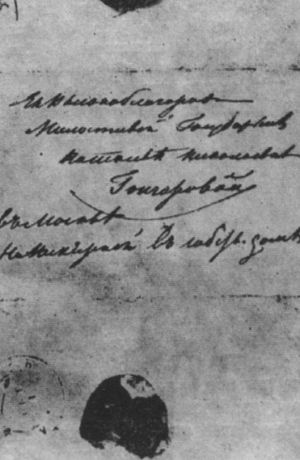 Ея высокоблагород
Милостивой Государынѣ
Натальѣ Николаевнѣ
Гончаровой
въ Москвѣ
На Никитской въ собств. домѣ